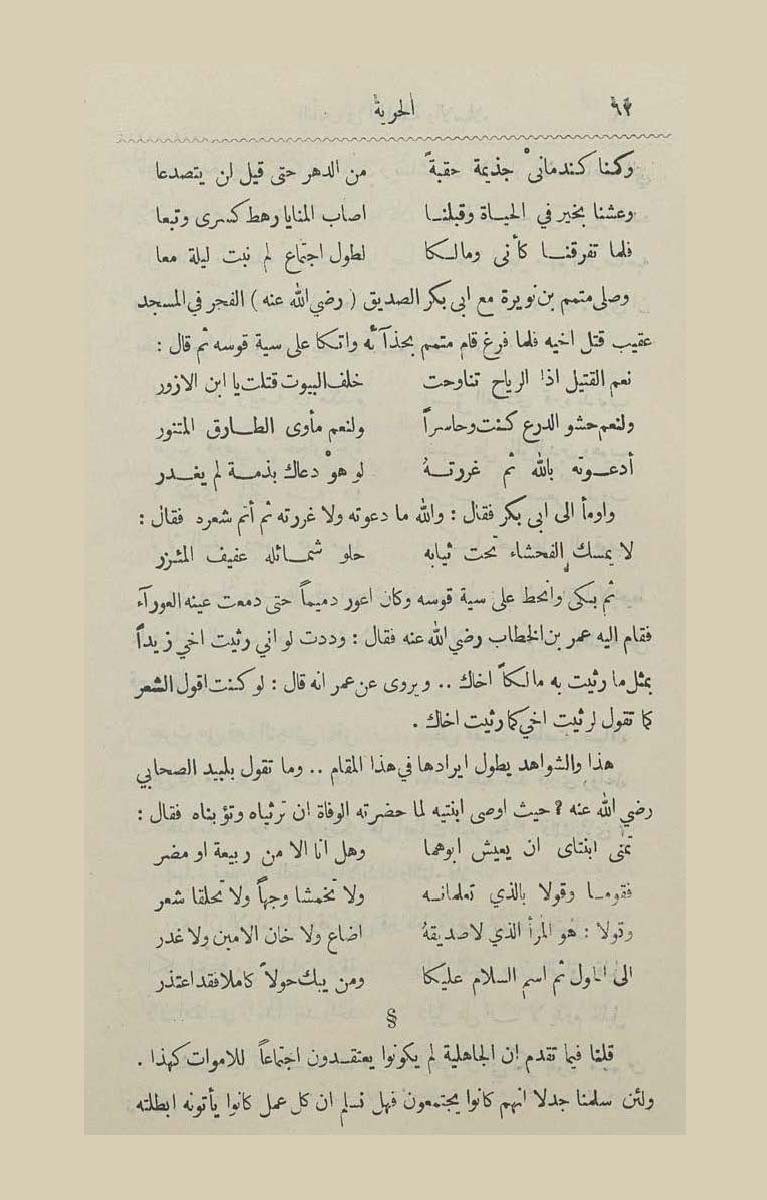 ٦٢ الحرية
وكنا كندمانىْ جذيمة حقبةً من الدهر حتى قيل لن يتصدعا
وعشنا بخير في الحياة وقبلنا اصاب المنايا رهط كسرى وتبعا
فلما تفرقنا كأنى ومالكا لطول اجتماع لم نبت ليلة معا
وصلى متمم بن نويرة مع ابى بكر الصديق ( رضي الله عنه ) الفجر في المسجد
عقيب قتل اخيه فلما فرغ قام متمم بحذآئه واتكا على سية قوسه ثم قال :
نعم القتيل اذا الرياح تناوحت خلف البيوت قتلت يا ابن الازور
ولنعم حشو الدرع كنت وحاسراً ولنعم مأوى الطارق المتنور
أدعوته بالله ثم غررتهُ لو هوْ دعاك بذمة لم يغدر
واومأ الى ابى بكر فقال : والله ما دعوته ولا غررته ثم أتم شعره فقال :
لا يمسك الفحشاء تحت ثيابه حلو شمائله عفيف المئزر
ثم بكى وانحط على سية قوسه وكان اعور دميماً حتى دمعت عينه العورآء
فقام اليه عمر بن الخطاب رضي الله عنه فقال : وددت لو اني رثيت اخي زيداً
بمثل ما رثيت به مالكاً اخاك .. ويروى عن عمر انه قال : لو كنت اقول الشعر
كما تقول لرثيت اخي كما رثيت اخاك .
هذا والشواهد يطول ايرادها في هذا المقام .. وما تقول بلبيد الصحابي
رضي الله عنه ? حيث اوصى ابنتيه لما حضرته الوفاة ان ترثياه وتؤبناه فقال :
تمنى ابنتاى ان يعيش ابوهما وهل انا الا من ربيعة او مضر
فقوما وقولا بالذي تعلمانه ولا تخمشا وجهاً ولا تحلقا شعر
وقولا : هو المرأ الذي لا صديقهُ اضاع ولا خان الامين ولا غدر
الى الحول ثم اسم السلام عليكما ومن يبك حولاً كاملا فقد اعتذر
§
قلنا فيما تقدم ان الجاهلية لم يكونوا يعتقدون اجتماعاً للاموات كهذا .
ولئن سلمنا جدلا انهم كانوا يجتمعون فهل نسلم ان كل عمل كانوا يأتونه ابطلته